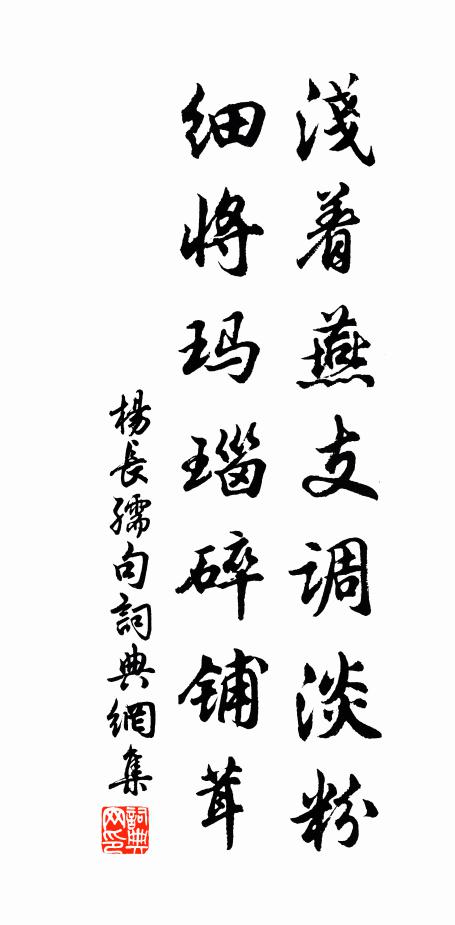 淺着燕支调淡粉
细将玛瑙碎铺茸
楊長孺句詞典網集
詞典网印